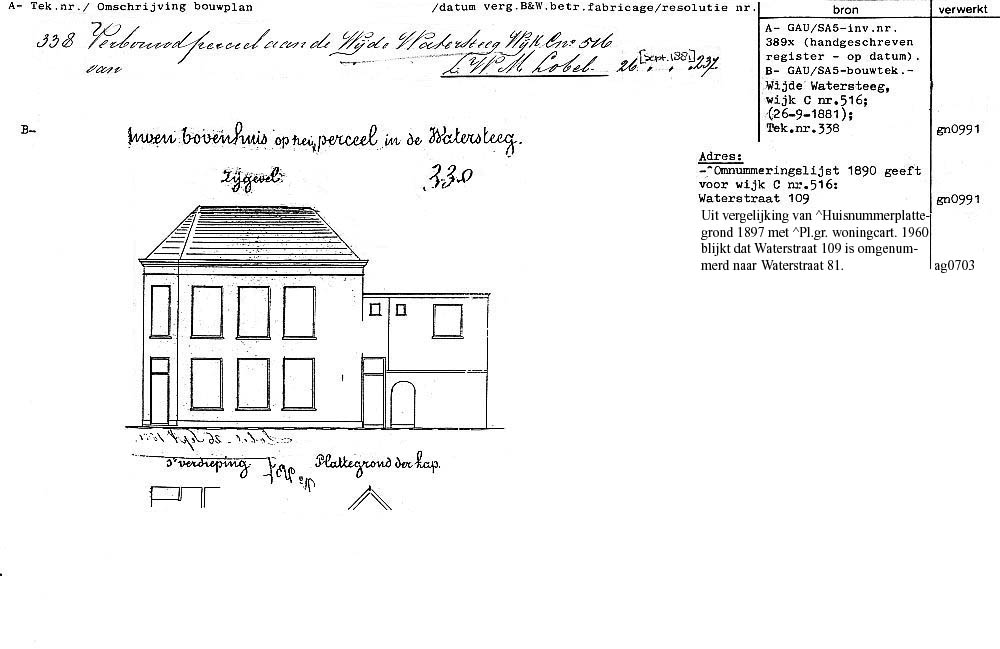 A- Tek.nr./ Omschrijving bouwplan /datum verg.B&W.betr.fabricage/resolutie nr. bron verwerkt
338 Verbouwd perceel aan de Wijde Watersteeg Wijk C no 516
van L. W. M. Lobel. 26 [Sept. 1881] 237
A- GAU/SA5-inv.nr.
389x (handgeschreven
register - op datum).
B- GAU/SA5-bouwtek.-
Wijde Watersteeg,
wijk C nr.516;
(26-9-1881);
Tek.nr.338 gn0991
B-
bovenhuis op het perceel in de Watersteeg.
Zijgevel. 338
Adres:
-^Omnummeringslijst 1890 geeft
voor wijk C nr.516:
Waterstraat 109 gn0991
Uit vergelijking van ^Huisnummerplatte-
grond 1897 met ^Pl.gr. woningcart. 1960
blijkt dat Waterstraat 109 is omgenum-
merd naar Waterstraat 81. ag0703
verdieping Plattegrond der kap.